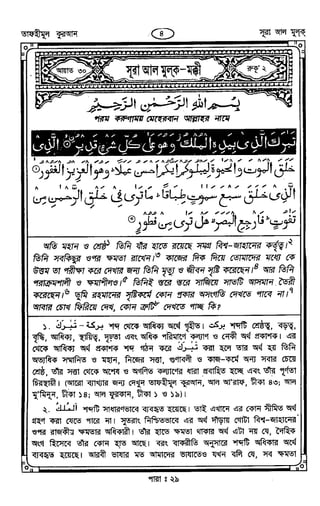 তাফহীমুল কুরআন
৪
সূরা আল মুল্‌ক্
আয়াত ৩০
সূরা আল মুলক–মক্কী
রুকূ' ২
بِسْمِ اللهِ الرَّحْمٰنِ الرَّحِيْمِ
পরম করুণাময় মেহেরবান আল্লাহর নামে
تَبٰرَكَ الَّذِىْ بِيَدِهِ الْمُلْكُ وَهُوَ عَلٰى كُلِّ شَىْءٍ قَدِيْرُ ۞ الَّذِىْ
خَلَقَ الْمَوْتَ وَالْحَيٰوةَ لِيَبْلُوَكُمْ اَيُّكُمْ اَحْسَنُ عَمَلًا ۚ وَهُوَ الْعَزِيْزُ الْغَفُوْرُ ۞
الَّذِىْ خَلَقَ سَبْعَ سَمٰوٰتٍ طِبَاقًا ۚ مَا تَرٰى فِىْ خَلْقِ الرَّحْمٰنِ مِنْ
تَفٰوُتٍ ۚ فَارْجِعِ الْبَصَرَ ۙ هَلْ تَرٰى مِنْ فُطُوْرٍ ۞
অতি মহান ও শ্রেষ্ঠ১ তিনি যাঁর হাতে রয়েছে সমগ্র বিশ্ব-জাহানের কর্তৃত্ব।২
তিনি সবকিছুর ওপর ক্ষমতা রাখেন।৩ কাজের দিক দিয়ে তোমাদের মধ্যে কে
উত্তম তা পরীক্ষা করে দেখার জন্য তিনি মৃত্যু ও জীবন সৃষ্টি করেছেন।৪ আর তিনি
পরাক্রমশালী ও ক্ষমাশীলও।৫ তিনিই স্তরে স্তরে সাজিয়ে সাতটি আসমান তৈরী
করেছেন।৬ তুমি রহমানের সৃষ্টিকর্মে কোন প্রকার অসংগতি দেখতে পাবে না।৭
আবার চোখ ফিরিয়ে দেখ, কোন ত্রুটি৮ দেখতে পাচ্ছ কি?
১. تَبٰرَكَ – بركة শব্দ থেকে আধিক্য অর্থে গৃহীত। بركة শব্দটি শ্রেষ্ঠত্ব, বড়ত্ব,
বৃদ্ধি, আধিক্য, স্থায়িত্ব, দৃঢ়তা এবং অধিক পরিমাণে কল্যাণ ও নেকী অর্থ প্রকাশক। এর
থেকে আধিক্য অর্থ প্রকাশক শব্দ গঠন করে تَبٰرَكَ করা হলে তার অর্থ হয় তিনি
অত্যধিক সম্মানিত ও মহান, নিজের সত্তা, গুণাবলী ও কাজ-কর্মে অন্য সবার চেয়ে
শ্রেষ্ঠ, তাঁর সত্তা থেকে অশেষ ও অগণিত কল্যাণের ধারা প্রবাহিত হচ্ছে এবং তাঁর পূর্ণতা
চিরস্থায়ী। (আরো ব্যাখ্যার জন্য দেখুন তাফহীমুল কুরআন, আল আ'রাফ, টীকা ৪৩; আল
মু'মিনূন, টীকা ১৪; আল ফুরকান, টীকা ১ ও ১৯)।
২. اَلْمُلْكُ শব্দটি সাধারণভাবে ব্যবহৃত হয়েছে। তাই এখানে এর কোন সীমিত অর্থ
গ্রহণ করা যেতে পারে না। সুতরাং নিশ্চিতভাবে এর অর্থ দাঁড়ায় গোটা বিশ্ব-জাহানের
ওপর রাজকীয় ক্ষমতার অধিকারী। তাঁর হাতে ক্ষমতা থাকার অর্থ এটা নয় যে, দৈহিক
অংগ হিসেবে তাঁর কোন হাত আছে। বরং বাকরীতি অনুসারে শব্দটি অধিকার অর্থে
ব্যবহৃত হয়েছে। আরবী ভাষার মত আমাদের ভাষাতেও যখন বলি যে, সব ক্ষমতা
পারা : ২৯